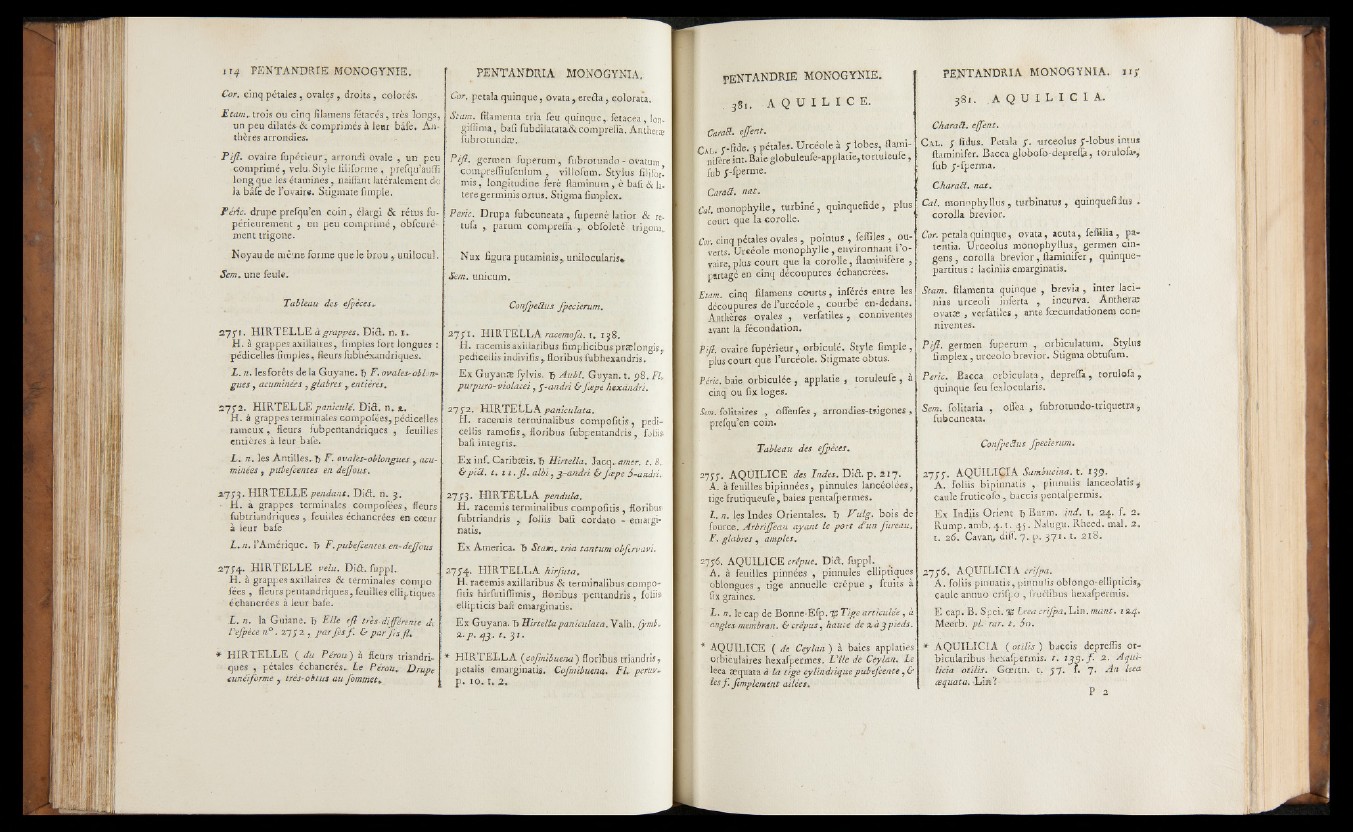 114 PENTANDRIE MONOGYNIE.
Cor. cinq pétales, ovales, droits, colorés.
Etam. trois ou cinq filamens sétacés, très longs,
un peu dilatés & comprimés à leur base. An-
thères arrondies.
Pist. ovaire supérieur, arrondi ovale, un peu
comprimé, velu. Style filiforme, presqu'aussi
long que les étamines, naissant latéralement de
la base de l'ovaire. Stigmate simple.
Péric. drupe presqu'en coin, élargi & rétus su-
périeurement, un peu comprimé, obscuré-
ment trigone.
Noyau de même forme que le brou, unilocul.
Sem. une seule.
Tableau des espèces.
2751. HIRTELLE à grappes. Dict. n. 1.
H. à grappes axillaires, simples fort longues :
pédicelles simples, fleurs subhéxandriques.
L. n. les forêts de la Guyane. ♄ F. ovales-oblon-
gues, acuminées, glabres, entières.
2752. HIRTELLE paniculé. Dict. n. 2.
H. à grappes terminales composées, pédicelles
rameux, fleurs subpentandriques, feuilles
entières à leur base.
L. n. les Antilles. ♄ F. ovales-oblongues, acu-
minées, pubescentes en dessous.
2753. HIRTELLE pendant. Dict. n. 3.
H. à grappes terminales composées, fleurs
subtriandriques, feuilles échancrées en cœur
à leur base
L. n. l'Amérique. ♄ F. pubescentes en-dessous
2754. HIRTELLE velu. Dict. suppl.
H. à grappes axillaires & terminales compo
sées, fleurs pentandriques, feuilles elliptiques
échancrées à leur base.
L. n. la Guiane. ♄ Elle est très-différente de
l'espèce n°. 2752, par ses f. & par ses fl.
* HIRTELLE (du Pérou) à fleurs triandri-
ques, pétales échancrés. Le Pérou. Drupe
cunéiforme, très-obtus au sommet.
PENTANDRIA MONOGYNIA.
Cor. petala quinque, ovata, erecta, colorata.
Stam. filamenta tria seu quinque, setacea, lon-
gissima, basi subdilatata & compressa. Antheræ
subrotundæ.
Pist. germen superum, subrotundo-ovatum,
compressiusculum, villosum. Stylus filifor-
mis, longitudine ferè staminum, è basi & la-
tere germinis ortus. Stigma simplex.
Peric. Drupa subcuneata, supernè latior & re-
tusa, parum compressa, obsoletè trigona.
Nux figura putaminis, unilocularis.
Sem. unicum.
Conspectus specierum.
2751. HIRTELLA racemosa. t. 138.
H. racemis axillaribus simplicibus prælongis,
pedicellis indivisis, floribus subhexandris.
Ex Guyanæ sylvis. ♄ Aubl. Guyan. t. 98. Fl.
purpuro-violacei, 5-andri & sæpe hexandri.
2752. HIRTELLA paniculata.
H. racemis terminalibus compositis, pedi-
cellis ramosis, floribus subpentandris, foliis
basi integris.
Ex inf. Caribæis. ♄ Hirtella. Jacq. amer. t. 8.
& pict. t. 11. fl. albi, 3-andri & sæpe 5-andri.
2753. HIRTELLA pendula.
H. racemis terminalibus compositis, floribus
subtriandris, foliis basi cordato-emargi-
natis.
Ex America. ♄ Stam. tria tantum observavi.
2754. HIRTELLA hirsuta.
H. racemis axillaribus & terminalibus compo-
sitis hirsutissimis, floribus pentandris, foliis
ellipticis basi emarginatis.
Ex Guyana. ♄ Hirtella paniculata. Valh. symb.
2. p. 43. t. 31.
* HIRTELLA (cosmibuena) floribus triandris,
petalis emarginatis. Cosmibuena. Fl. peruv.
p. 10. t. 2.
PENTANDRIE MONOGYNIE.
381. AQUILICE.
Caract. essent.
CAL. 5-fide. 5 pétales. Urcéole à 5 lobes, stami-
nifère int. Baie globuleuse-applatie, toruleuse,
sub 5-sperme.
Caract. nat.
Cal. monophylle, turbiné, quinquefide, plus
court que la corolle.
Cor. cinq pétales ovales, pointus, sessiles, ou-
verts. Urcéole monophylle, environnant l'o-
vaire, plus court que la corolle, staminifère,
partagé en cinq découpures échancrées.
Etam. cinq filamens courts, insérés entre les
découpures de l'urcéole, courbé en-dedans.
Anthères ovales, versatiles, conniventes
avant la fécondation.
Pist. ovaire supérieur, orbiculé. Style simple,
plus court que l'urcéole. Stigmate obtus.
Péric. baie orbiculée, applatie, toruleuse, à
cinq ou six loges.
Sem. solitaires, osseuses, arrondies-trigones,
presqu'en coin.
Tableau des espèces.
2755. AQUILICE des Indes. Dict. p. 217.
A. à feuilles bipinnées, pinnules lancéolées,
tige frutiqueuse, baies pentaspermes.
L. n. les Indes Orientales. ♄ Vulg. bois de
source. Arbrisseau ayant le port d'un sureau.
F. glabres, amples.
2756. AQUILICE crépue. Dict. suppl.
A. à feuilles pinnées, pinnules elliptiques
oblongues, tige annuelle crépue, fruits à
six graines.
L. n. le cap de Bonne-Esp. ♃ Tige articulée, à
angles membran. & crépus, haute de 2 à 3 pieds.
* AQUILICE (de Ceylan) à baies applaties
orbiculaires hexaspermes. L'Ile de Ceylan. Le
leea æquata à la tige cylindrique pubescente, &
les f. simplement ailées.
PENTANDRIA MONOGYNIA. 115
381. AQUILICIA.
Charact. essent.
CAL. 5 fidus. Petala 5. urceolus 5-lobus intus
staminifer. Bacca globoso-depressa, torulosa,
sub 5-sperma.
Charact. nat.
Cal. monophyllus, turbinatus, quinquefidus.
corolla brevior.
Cor. petala quinque, ovata, acuta, sessilia, pa-
tentia. Urceolus monophyllus, germen cin-
gens, corolla brevior, staminifer, quinque-
partitus : laciniis emarginatis.
Stam. filamenta quinque, brevia, inter laci-
nias urceoli inserta, incurva. Antheræ
ovatæ, versatiles, ante fœcundationem con-
niventes.
Pist. germen superum, orbiculatum. Stylus
simplex, urceolo brevior. Stigma obtusum.
Peric. Bacca orbiculata, depressa, torulosa,
quinque seu sexlocularis.
Sem. solitaria, ossea, subrotundo-triquetra,
subcuneata.
Conspectus specierum.
2755. AQUILICIA Sambucina. t. 139.
A. foliis bipinnatis, pinnulis lanceolatis,
caule fruticoso, baccis pentaspermis.
Ex Indiis Orient ♄ Burm. ind. t. 24. f. 2.
Rump. amb. 4. t. 45. Nalugu. Rheed. mal. 2.
t. 26. Cavan. diss. 7. p. 371. t. 218.
2756. AQUILICIA crispa.
A. foliis pinnatis, pinnulis oblongo-ellipticis,
caule annuo crispo, fructibus hexaspermis.
E cap. B. Spei. ♃ Leea crispa. Lin. mant. 124.
Meerb. pl. rar. t. 50.
* AQUILICIA (otilis) baccis depressis or-
bicularibus hexaspermis. t. 139. f. 2. Aqui-
licia otilis. Gærtn. t. 57. f. 7. An leea
æquata. Lin ?
P 2